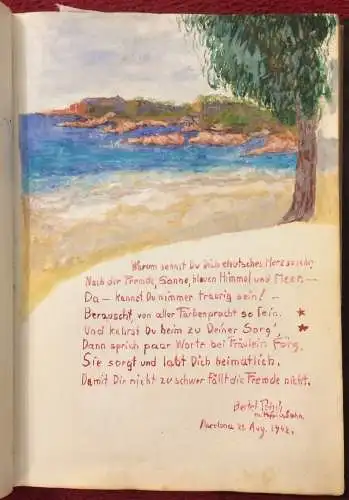 Warum sehnst Du Dich deutsches Herz so sehr,
Nach der Fremde, Sonne, blauen Himmel und Meer. —
Da — kannst Du nimmer traurig sein! —
Berauscht, von aller Farbenpracht so fein.
Und kehrst Du heim zu Deiner Sorg'
Dann sprich paar Worte bei Fräulein Förg.
Sie sorgt und labt Dich heimatlich.
Damit Dir nicht zu schwer fällt die Fremde nicht.
Bertel
Aug.